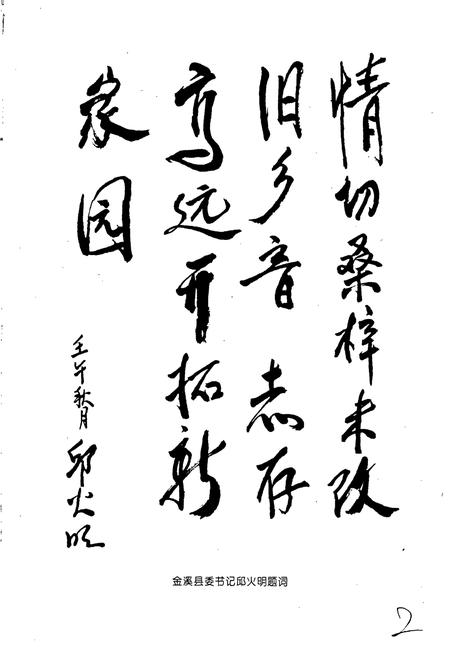 情切桑梓未改
旧乡音 志存
高远开拓新
家园
壬午秋月 邱火明
金溪县委书记邱火明题词
2